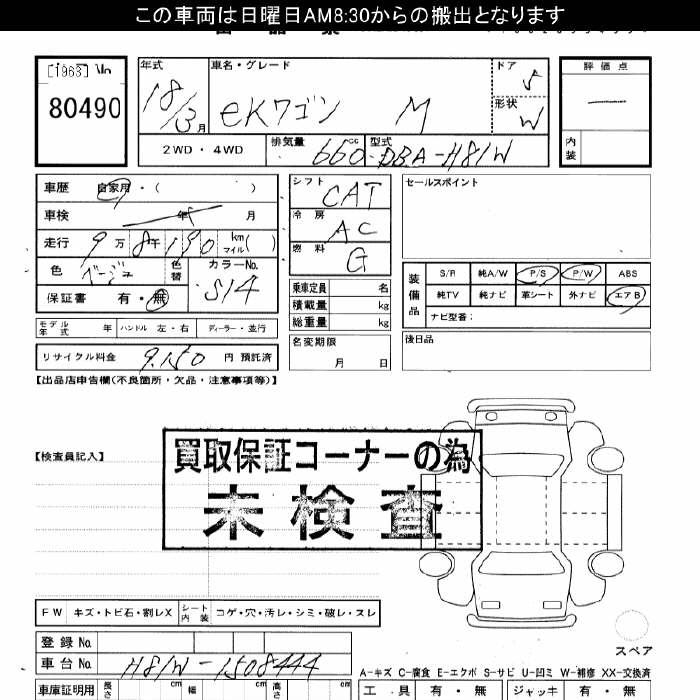 この車両は日曜日AM8:30からの搬出となります
[1963]
80490
年式
18/3月
車名・グレード
eKワゴン M
ドア
5
形状
W
評価点
内装
2WD・4WD
排気量
660cc
型式
DBA-H81W
車歴 自家用・( )
車検 年 月
走行 9万8千190 km マイル( )
色 ベージュ 色替 カラーNo. S14
保証書 有・無
モデル年式 年 ハンドル 左・右 ディーラー・並行
リサイクル料金 9,150 円 預託済
シフト CAT
冷房 AC
燃料 G
乗車定員 名
積載量 kg
総重量 kg
名変期限
月 日
セールスポイント
装備品
S/R 純A/W P/S P/W ABS
純TV 純ナビ 革シート 外ナビ エアB
ナビ型番:
後日品
【出品店申告欄(不良箇所・欠品・注意事項等)】
【検査員記入】
買取保証コーナーの為
未検査
FW キズ・トビ石・割レX シート内装 コゲ・穴・汚レ・シミ・破レ・スレ
登録No
車台No H81W-1508444
スペア
A-キズ C-腐食 E-エクボ S-サビ U-凹ミ W-補修 XX-交換済
車庫証明用 長さ cm 幅 cm 高さ cm
工具 有・無 ジャッキ 有・無